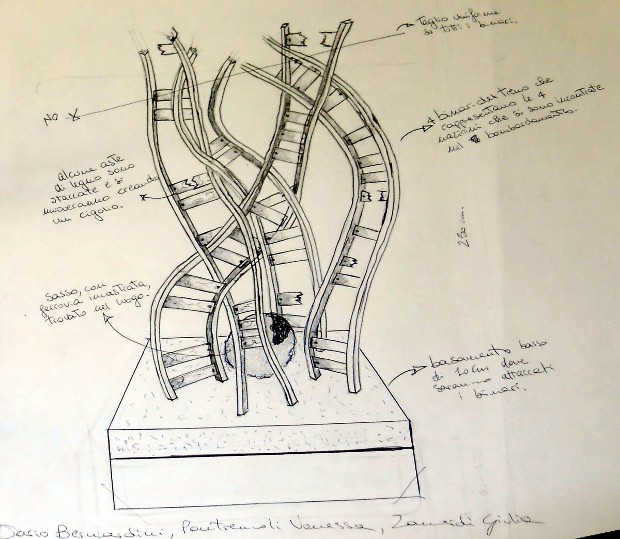 taglio uniforme
di tutti i binari.
NO X
4 binari del treno che
rappresentano le 4
nazioni che si sono incontrate
nel bombardamento.
alcune aste
di legno sono
staccate e si
muoveranno creando
un cigolio.
250 cm.
sasso, con
ferrovia incastrata,
trovato nel luogo.
basamento basso
di 20 cm dove
saranno attaccati
i binari.
Dario Bernardini, Pontremoli Vanessa, Zanardi Giulia